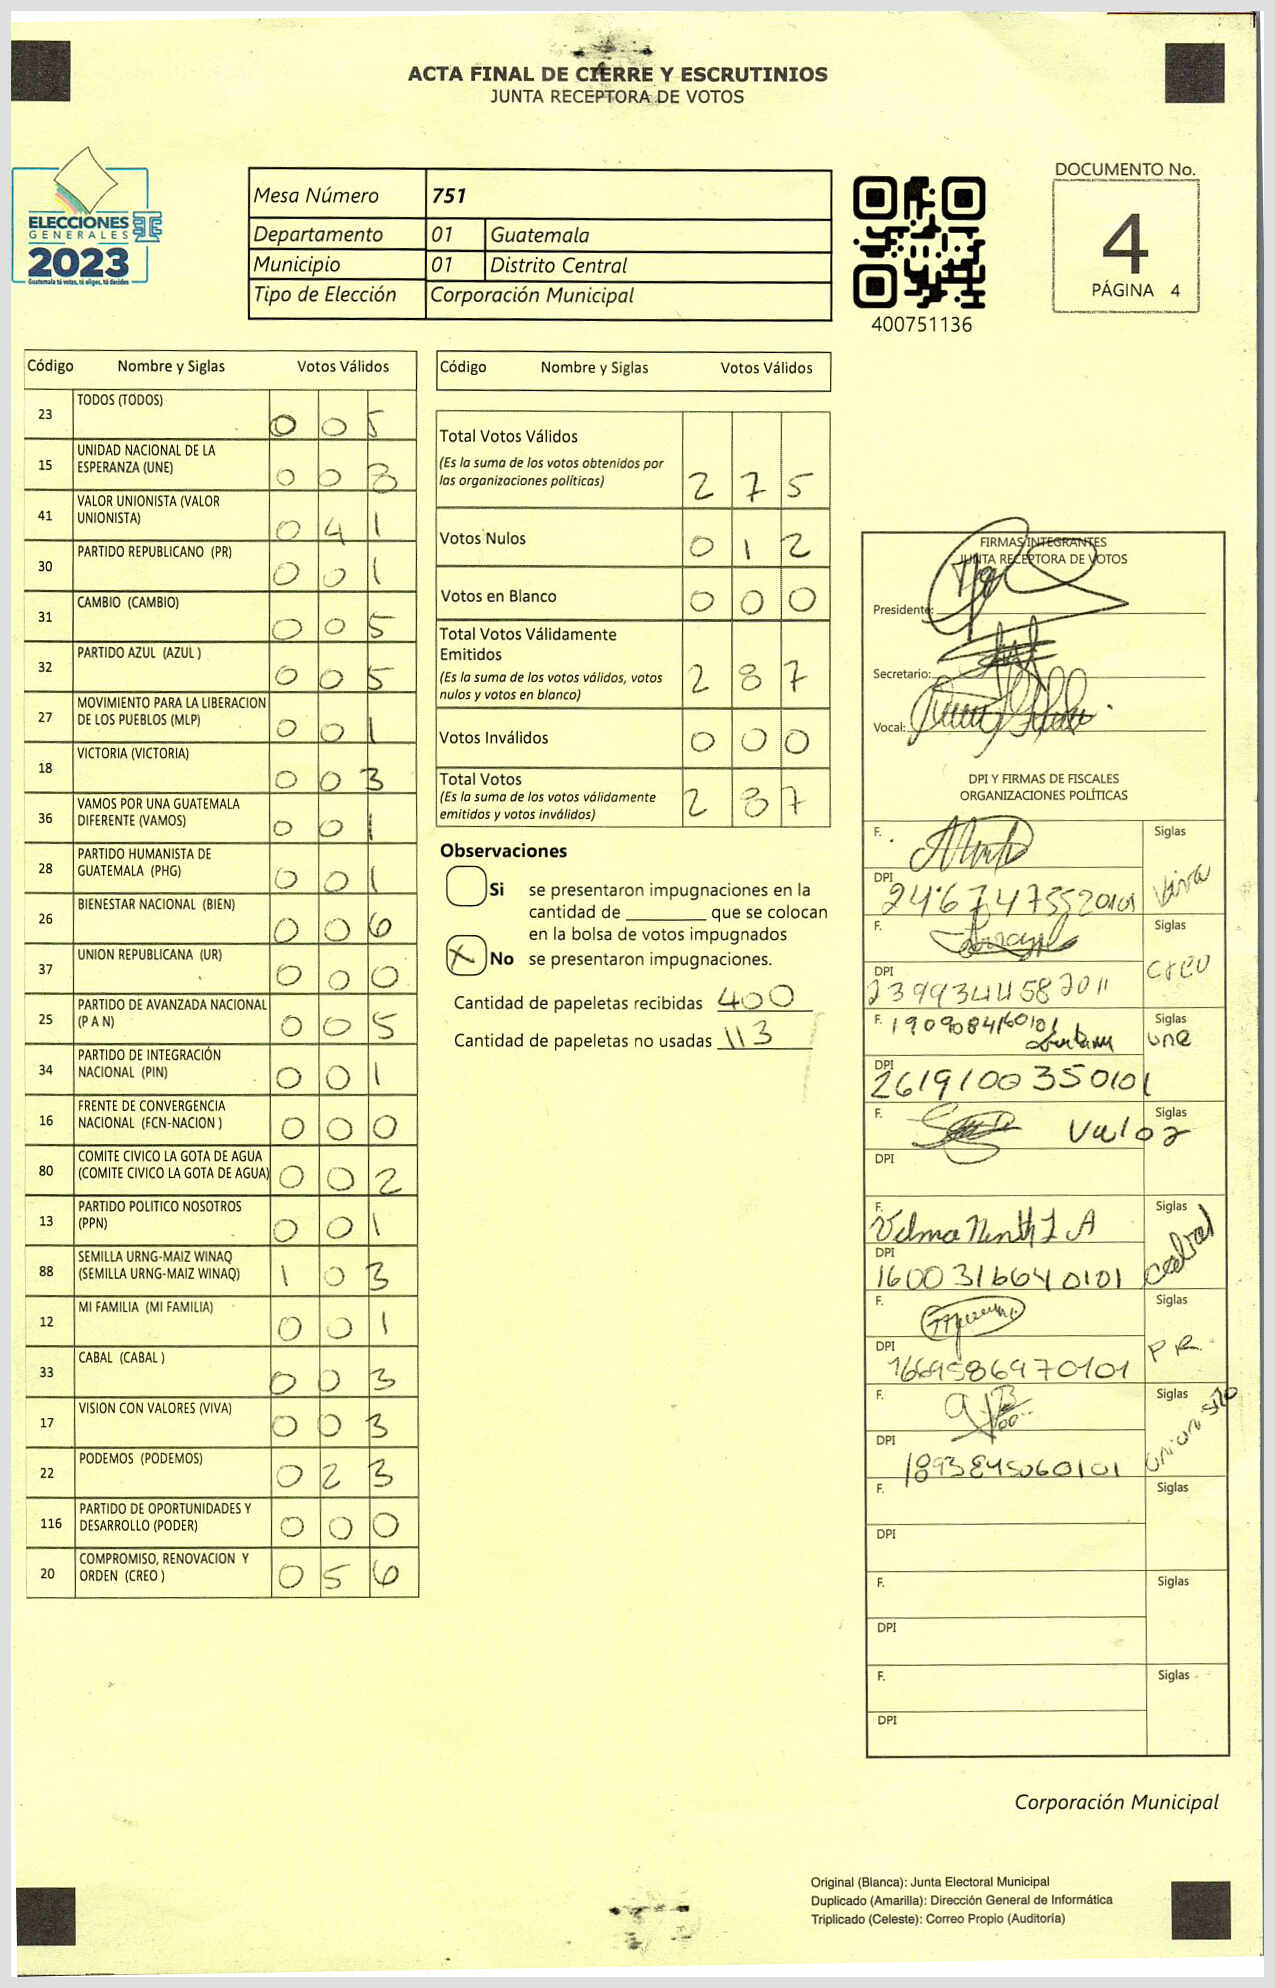 ACTA FINAL DE CIERRE Y ESCRUTINIOS
JUNTA RECEPTORA DE VOTOS
ELECCIONES
GENERALES
2023
Guatemala tú votas, tú eliges, tú decides
Mesa Número 751
Departamento 01 Guatemala
Municipio 01 Distrito Central
Tipo de Elección Corporación Municipal
400751136
DOCUMENTO No.
4
PÁGINA 4
Código Nombre y Siglas Votos Válidos
23 TODOS (TODOS) 0 0 5
15 UNIDAD NACIONAL DE LA ESPERANZA (UNE) 0 0 8
41 VALOR UNIONISTA (VALOR UNIONISTA) 0 4 1
30 PARTIDO REPUBLICANO (PR) 0 0 1
31 CAMBIO (CAMBIO) 0 0 5
32 PARTIDO AZUL (AZUL ) 0 0 5
27 MOVIMIENTO PARA LA LIBERACION DE LOS PUEBLOS (MLP) 0 0 1
18 VICTORIA (VICTORIA) 0 0 3
36 VAMOS POR UNA GUATEMALA DIFERENTE (VAMOS) 0 0 1
28 PARTIDO HUMANISTA DE GUATEMALA (PHG) 0 0 1
26 BIENESTAR NACIONAL (BIEN) 0 0 6
37 UNION REPUBLICANA (UR) 0 0 0
25 PARTIDO DE AVANZADA NACIONAL (P A N) 0 0 5
34 PARTIDO DE INTEGRACIÓN NACIONAL (PIN) 0 0 1
16 FRENTE DE CONVERGENCIA NACIONAL (FCN-NACION ) 0 0 0
80 COMITE CIVICO LA GOTA DE AGUA (COMITE CIVICO LA GOTA DE AGUA) 0 0 2
13 PARTIDO POLITICO NOSOTROS (PPN) 0 0 1
88 SEMILLA URNG-MAIZ WINAQ (SEMILLA URNG-MAIZ WINAQ) 1 0 3
12 MI FAMILIA (MI FAMILIA) 0 0 1
33 CABAL (CABAL ) 0 0 3
17 VISION CON VALORES (VIVA) 0 0 3
22 PODEMOS (PODEMOS) 0 2 3
116 PARTIDO DE OPORTUNIDADES Y DESARROLLO (PODER) 0 0 0
20 COMPROMISO, RENOVACION Y ORDEN (CREO ) 0 5 6
Código Nombre y Siglas Votos Válidos
Total Votos Válidos
(Es la suma de los votos obtenidos por
las organizaciones políticas) 2 7 5
Votos Nulos 0 1 2
Votos en Blanco 0 0 0
Total Votos Válidamente
Emitidos
(Es la suma de los votos válidos, votos
nulos y votos en blanco) 2 8 7
Votos Inválidos 0 0 0
Total Votos
(Es la suma de los votos válidamente
emitidos y votos inválidos) 2 8 7
Observaciones
Si se presentaron impugnaciones en la
cantidad de ________ que se colocan
en la bolsa de votos impugnados
X No se presentaron impugnaciones.
Cantidad de papeletas recibidas 400
Cantidad de papeletas no usadas 113
FIRMAS INTEGRANTES
JUNTA RECEPTORA DE VOTOS
Presidente:
Secretario:
Vocal:
DPI Y FIRMAS DE FISCALES
ORGANIZACIONES POLÍTICAS
F. Siglas
DPI 24674735520101 Viva
F. Siglas
DPI 2399344582011 creo
F. 1909084160101 Siglas une
DPI 2619100350101
F. Valor Siglas
DPI
F. Siglas
DPI 1600316640101 cabal
F. Siglas
DPI 1669586970101 P R.
F. Siglas
DPI 1893845060101 unionista
F. Siglas
DPI
F. Siglas
DPI
F. Siglas
DPI
Corporación Municipal
Original (Blanca): Junta Electoral Municipal
Duplicado (Amarilla): Dirección General de Informática
Triplicado (Celeste): Correo Propio (Auditoría)